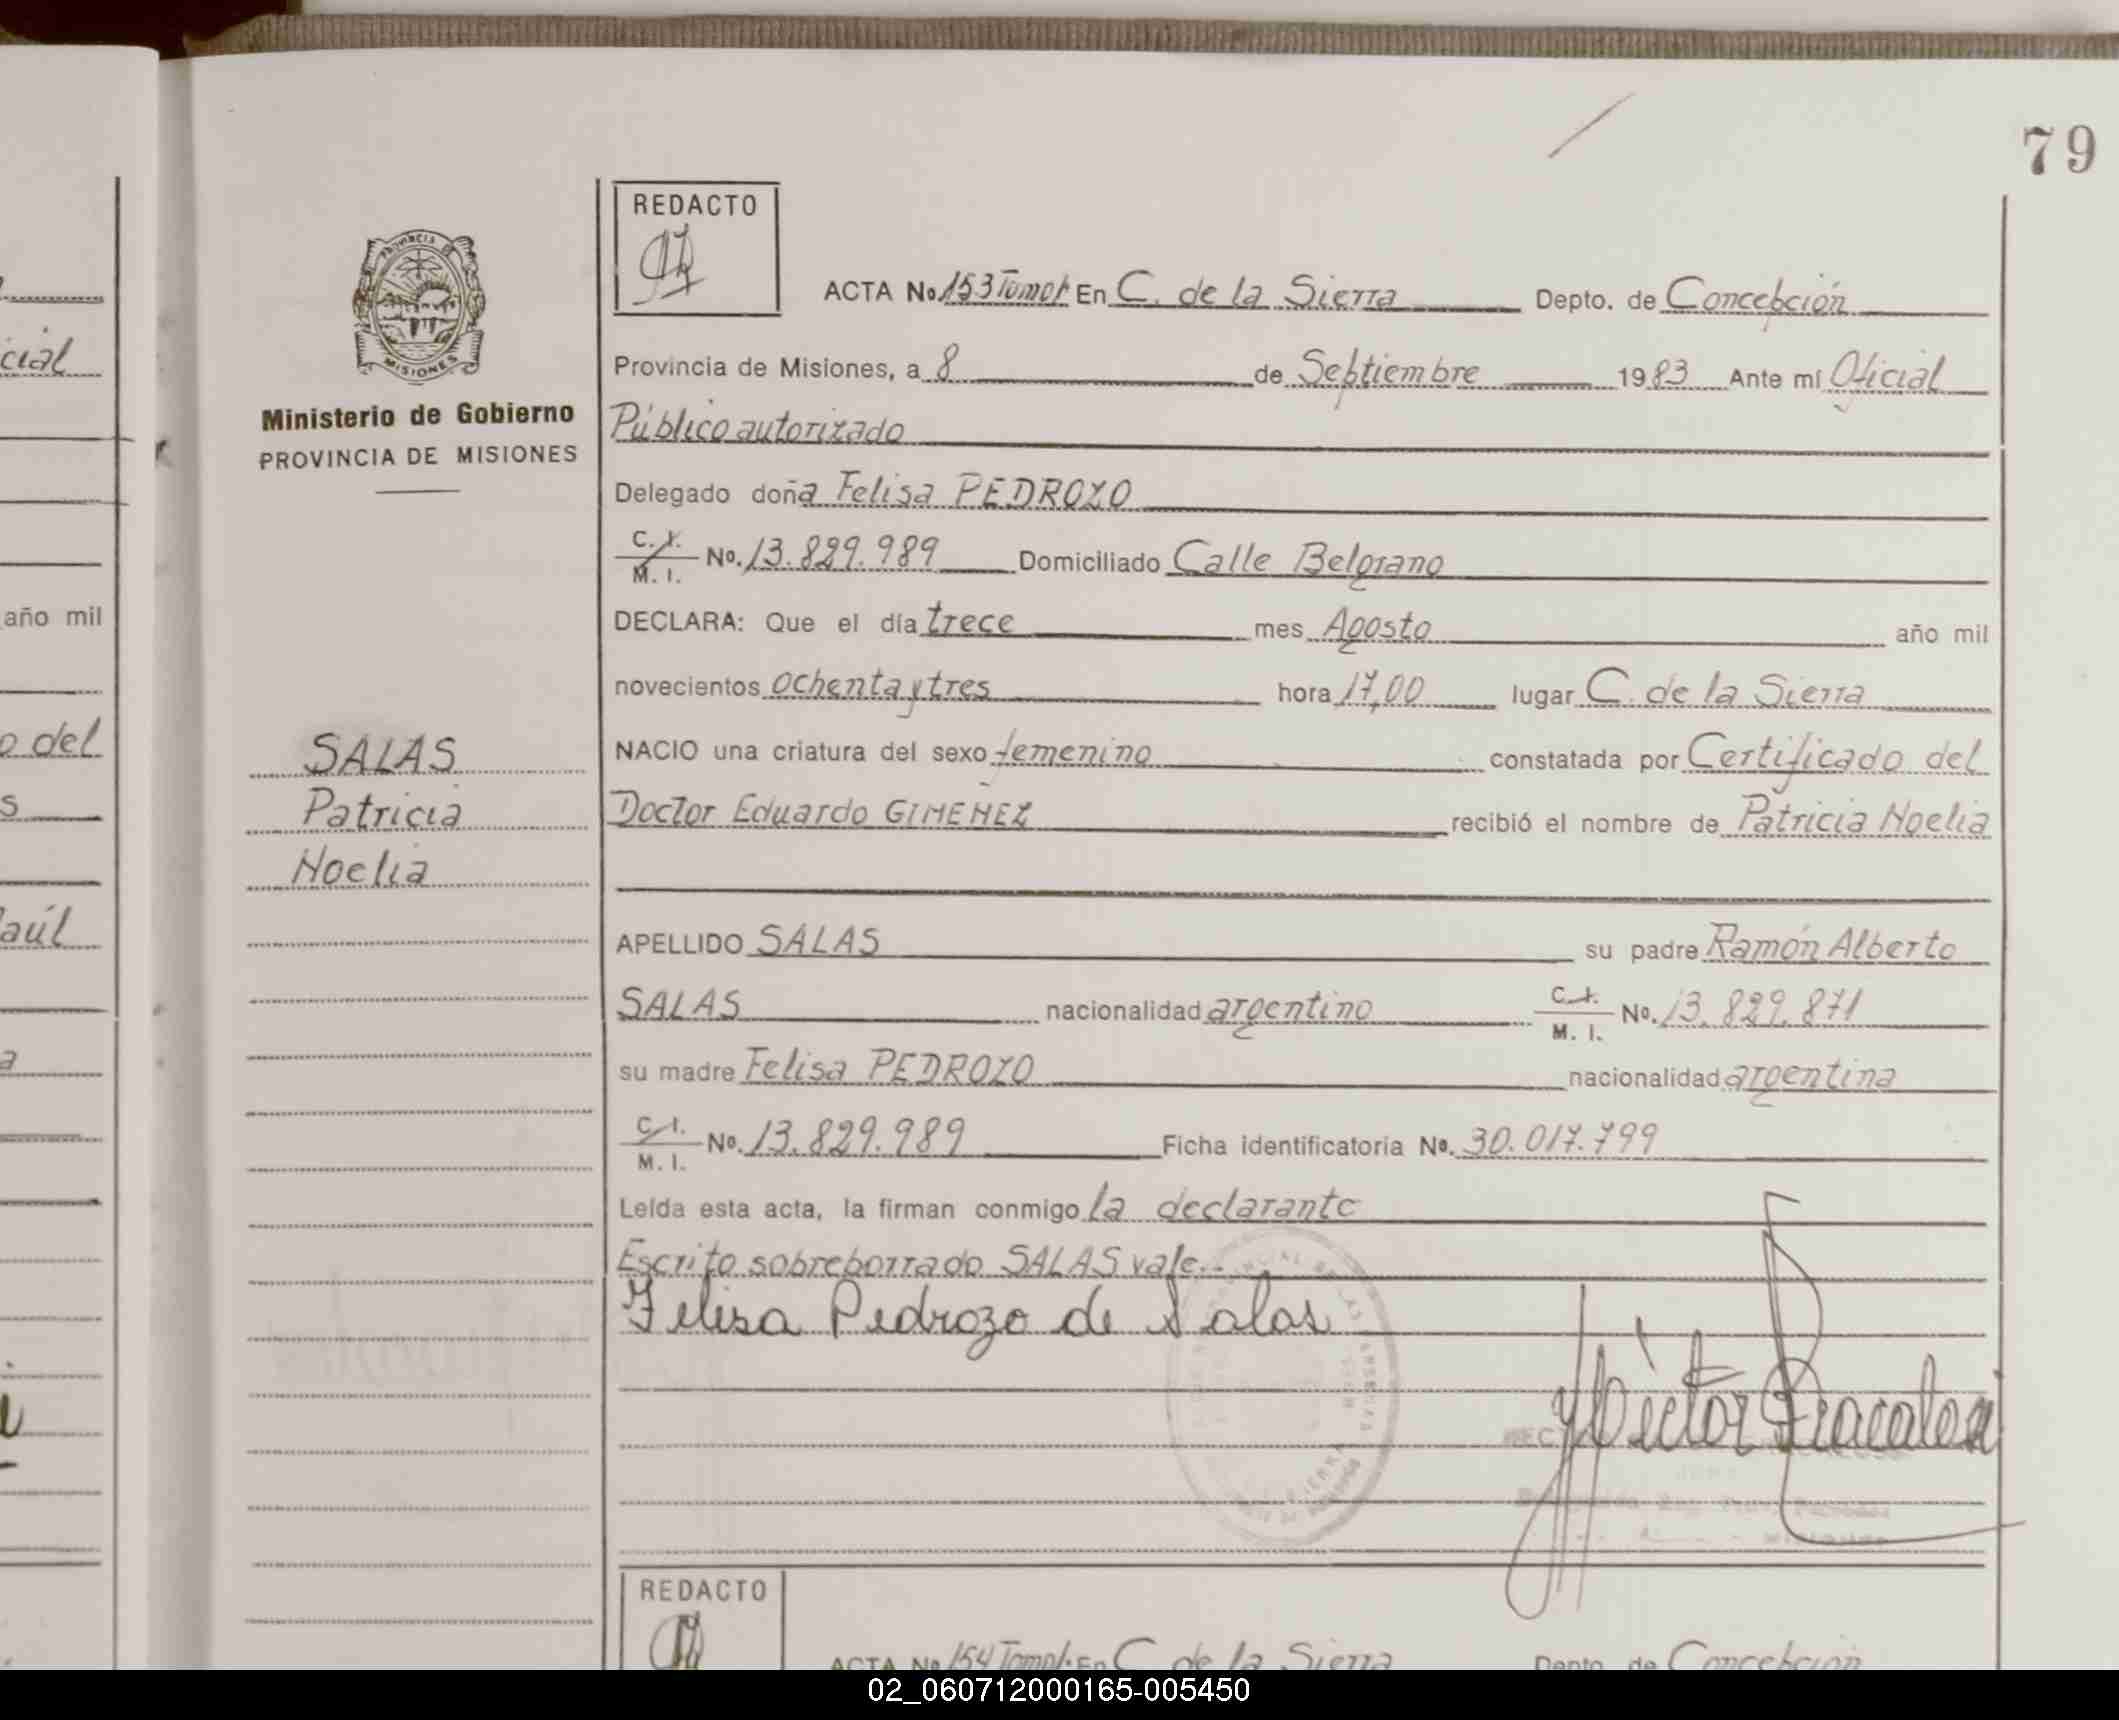 79
REDACTO
ACTA No. 153 Tomo I En C. de la Sierra Depto. de Concepción
cial
Provincia de Misiones, a 8 de Septiembre 1983 Ante mí Oficial
PROVINCIA DE
MISIONES
Ministerio de Gobierno
PROVINCIA DE MISIONES
Público autorizado
Delegado doña Felisa PEDROZO
C. I.
M. I.
No. 13.829.989 Domiciliado Calle Belgrano
año mil
DECLARA: Que el día trece mes Agosto año mil
novecientos ochenta y tres hora 17,00 lugar C. de la Sierra
o del
SALAS
Patricia
Noelia
NACIO una criatura del sexo femenino constatada por Certificado del
Doctor Eduardo GIMENEZ recibió el nombre de Patricia Noelia
aúl
APELLIDO SALAS su padre Ramón Alberto
SALAS nacionalidad argentino C. I. M. I. No. 13.829.871
su madre Felisa PEDROZO nacionalidad argentina
C. I.
M. I.
No. 13.829.989 Ficha identificatoria No. 30.017.799
Leída esta acta, la firman conmigo la declarante
Escrito sobreborrado SALAS vale..
Felisa Pedrozo de Salas
Héctor
REDACTO
ACTA No 154 Tomo I. En C. de la Sierra Depto. de Concepción
02_060712000165-005450